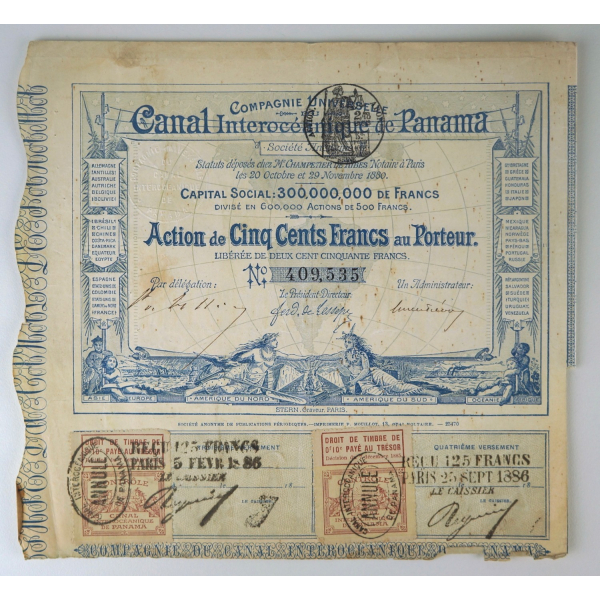 COMPAGNIE UNIVERSELLE
Canal Interocéanique de Panama
Société
Statuts déposés chez Me CHAMPETIER de RIBES Notaire à Paris
les 20 Octobre et 29 Novembre 1880.
CAPITAL SOCIAL: 300,000,000 DE FRANCS
DIVISÉ EN 600,000 ACTIONS DE 500 FRANCS.
Action de Cinq Cents Francs au Porteur.
LIBÉRÉE DE DEUX CENT CINQUANTE FRANCS.
No 409,535
Par délégation:
Le Président-Directeur
Un Administrateur:
Ferd. de Lesseps
ALLEMAGNE
ANTILLES
AUSTRALIE
AUTRICHE
BELGIQUE
BOLIVIE
BRÉSIL
CHILI
CHINE
COSTA-RICA
DANEMARK
EQUATEUR
EGYPTE
ESPAGNE
FRANCE
GRÈCE
GUATEMALA
HONDURAS
ITALIE
JAPON
MEXIQUE
NICARAGUA
NORWÈGE
PAYS-BAS
PÉROU
PORTUGAL
RUSSIE
SALVADOR
SUÈDE
TURQUIE
URUGUAY
VENEZUELA
ASIE
EUROPE
AMÉRIQUE DU NORD
AMÉRIQUE DU SUD
OCÉANIE
STERN, Graveur, PARIS.
SOCIÉTÉ ANONYME DE PUBLICATIONS PÉRIODIQUES. — IMPRIMERIE P. MOUILLOT, 13, QUAI VOLTAIRE. —
DROIT DE TIMBRE DE
PAYÉ AU TRÉSOR
ANNULÉ
CANAL
INTEROCÉANIQUE
DE PANAMA
REÇU 125 FRANCS
PARIS 5 FEVR 1886
LE CAISSIER
DROIT DE TIMBRE DE
PAYÉ AU TRÉSOR
ANNULÉ
QUATRIÈME VERSEMENT
REÇU 125 FRANCS
PARIS 25 SEPT 1886
LE CAISSIER
COMPAGNIE DU CANAL INTEROCÉANIQUE D NAMA